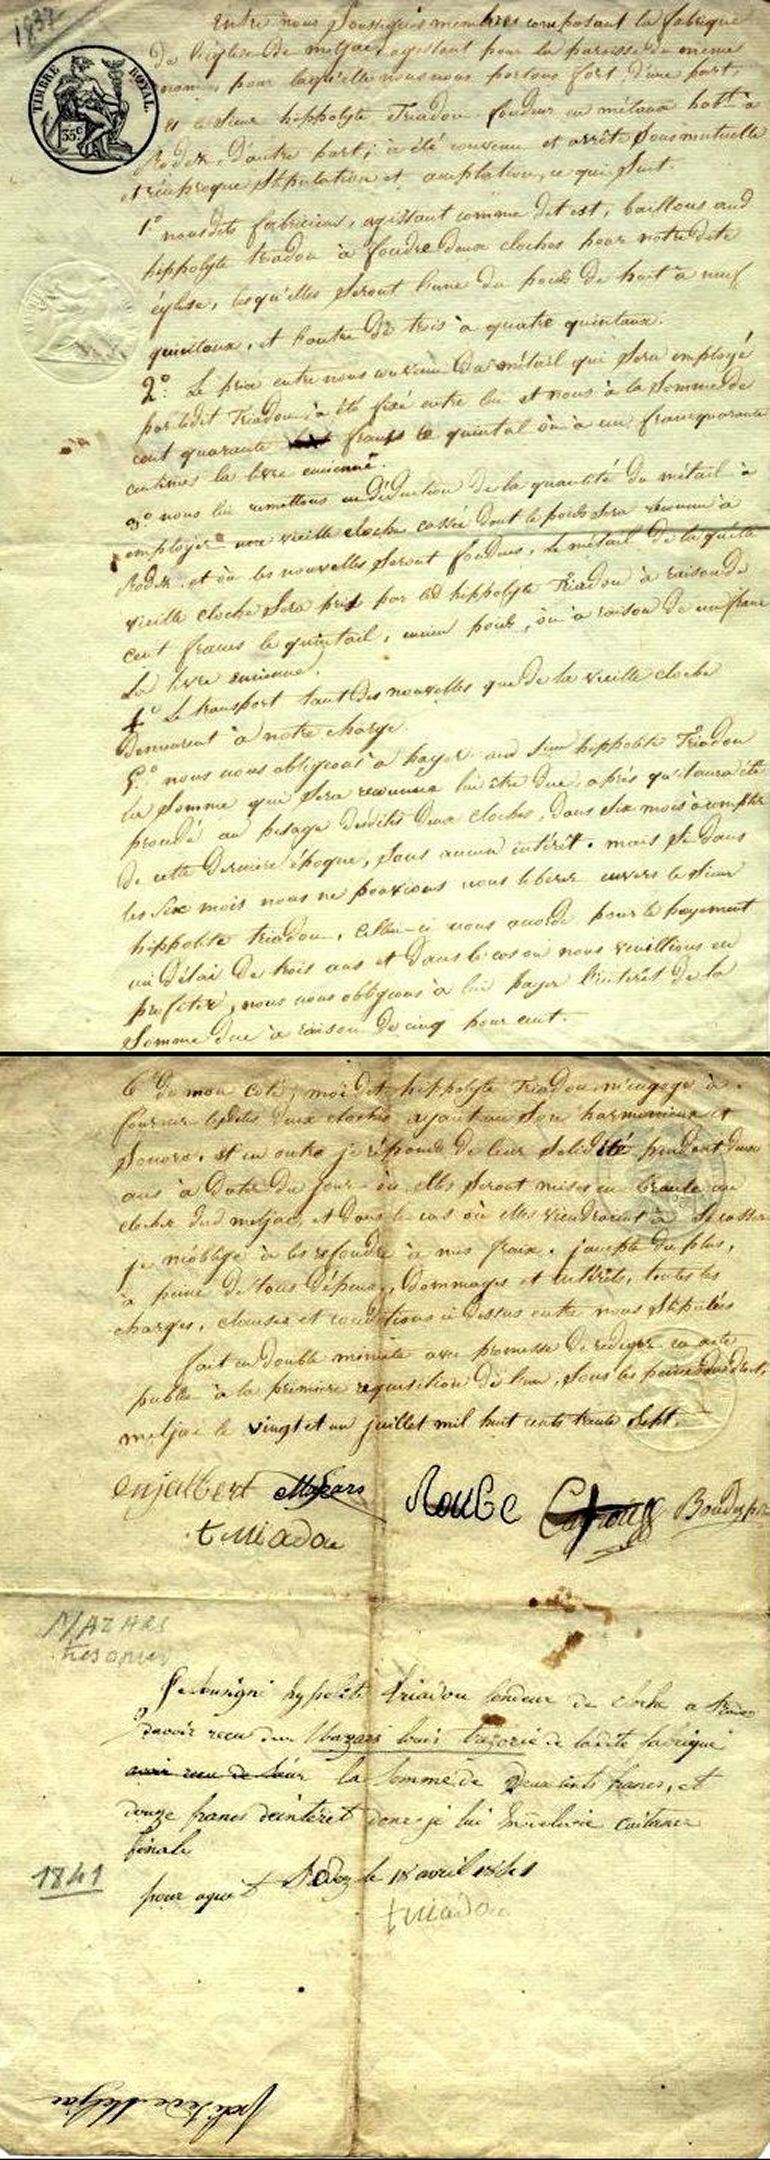 1837
TIMBRE ROYAL
35c
Entre nous soussignés membres composant la fabrique
de l'église de meljac, agissant pour la paroisse du meme
nom, pour laquelle nous nous portons fort d'une part,
et le sieur hippolyte Triadou fondeur en métaux habt à
Rodez, d'autre part; à été convenu et arrêté sous mutuelle
et réciproque stipulation et acceptation, ce qui suit.
1° nousdits fabriciens, agissant comme dit est, baillons aud
hippolyte triadou à fondre deux cloches pour notre dite
église, lesqu'elles seront l'une du poids de huit à neuf
quintaux, et l'autre de trois à quatre quintaux.
2° Le prix entre nous convenu du métail qui sera employé
par ledit Triadou, à été fixé entre lui et nous à la somme de
cent quarante francs le quintal ou à un franc quarante
centimes la livre ancienne.
3° nous lui remettons en déduction de la quantité du métail à
employer une vieille cloche cassée dont le poids sera reconnu à
Rodez, et où les nouvelles seront fondues, le métail de laquelle
vieille cloche sera pris par led hippolyte Triadou à raison de
cent francs le quintail, ancien poids, ou à raison de un franc
la livre ancienne.
4° Le transport tant des nouvelles que de la vieille cloche
demeurent à notre charge.
5° nous nous obligeons à payer aud sieur hippolite Triadou
la somme qui sera reconnue lui être due, après qu'il aura été
procédé au pesage desdites deux cloches, dans six mois à compter
de cette dernière époque, sans aucun intérêt. mais si dans
les six mois nous ne pouvions nous libérer envers le sieur
hippolite triadou, celui-ci nous accorde pour le payement
un délai de trois ans et dans le cas où nous voulions en
profiter, nous nous obligeons à lui payer l'intérêt de la
somme due à raison de cinq pour cent.
6° de mon coté, moi dit hippolyte Triadou m'engage à
fournir lesdites deux cloches ayant un son harmonieux et
sonore, et en outre je réponds de leur solidité pendant deux
ans à dater du jour où elles seront mises en branle au
clocher dud meljac, et dans le cas où elles viendroient à se casser
je m'oblige à les refondre à mes frais. j'accepte du plus,
à peine de tous dépens, dommages et intérêts, toutes les
charges, clauses et conditions ci dessus entre nous stipulées
fait en double minute avec promesse de rédiger en acte
public à la première réquisition de l'un, sous les peines de droit,
meljac le vingt et un juillet mil huit cents trente sept.
enjalbert Mazars Roube Boudes
triadou
MAZARS
trésorier
Je sousigné hypolite triadou fondeur de cloche a Rodez
davoir recu du Mazars louis trézorié de ladite fabrique
avoir recu de sieur la somme de deux cents francs, et
douze francs deintéret donc je lui en claire caitance
finale
1841
pour aquit Rodez le 18 avril 1841
triadou
Meljac